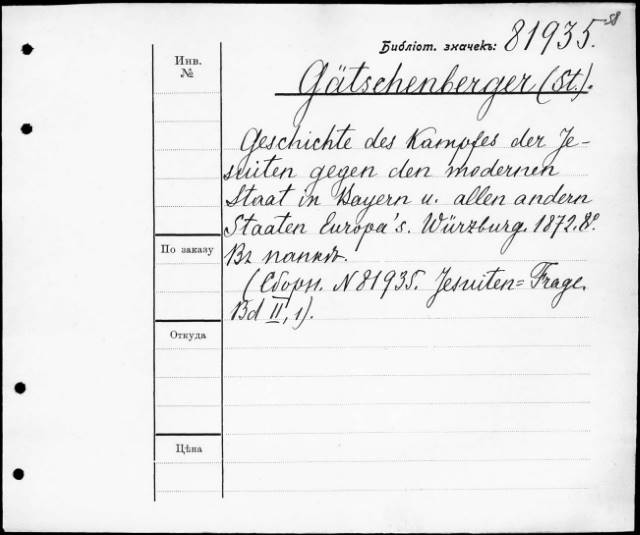 58
Библіот. значекъ: 81935.
Инв.
№
Gätschenberger (St.).
Geschichte des Kampfes der Je-
suiten gegen den modernen
Staat in Bayern u. allen andern
Staaten Europa's. Würzburg. 1872. 8º.
По заказу
Въ папкѣ.
(Сборн. N 81935. Jesuiten=Frage.
Bd II, 1).
Откуда
Цѣна